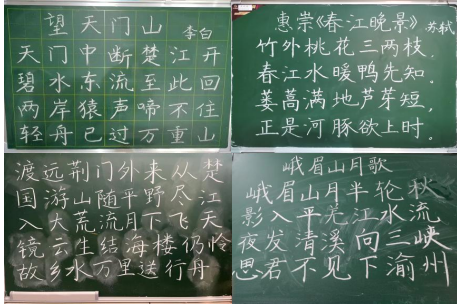 望天门山 李白
天门中断楚江开
碧水东流至此回
两岸猿声啼不住
轻舟已过万重山
惠崇《春江晚景》 苏轼
竹外桃花三两枝,
春江水暖鸭先知。
蒌蒿满地芦芽短,
正是河豚欲上时。
渡远荆门外来从楚
国游山随平野尽江
入大荒流月下飞天
镜云生结海楼仍怜
故乡水万里送行舟
峨眉山月歌
峨眉山月半轮秋
影入平羌江水流
夜发清溪向三峡
思君不见下渝州